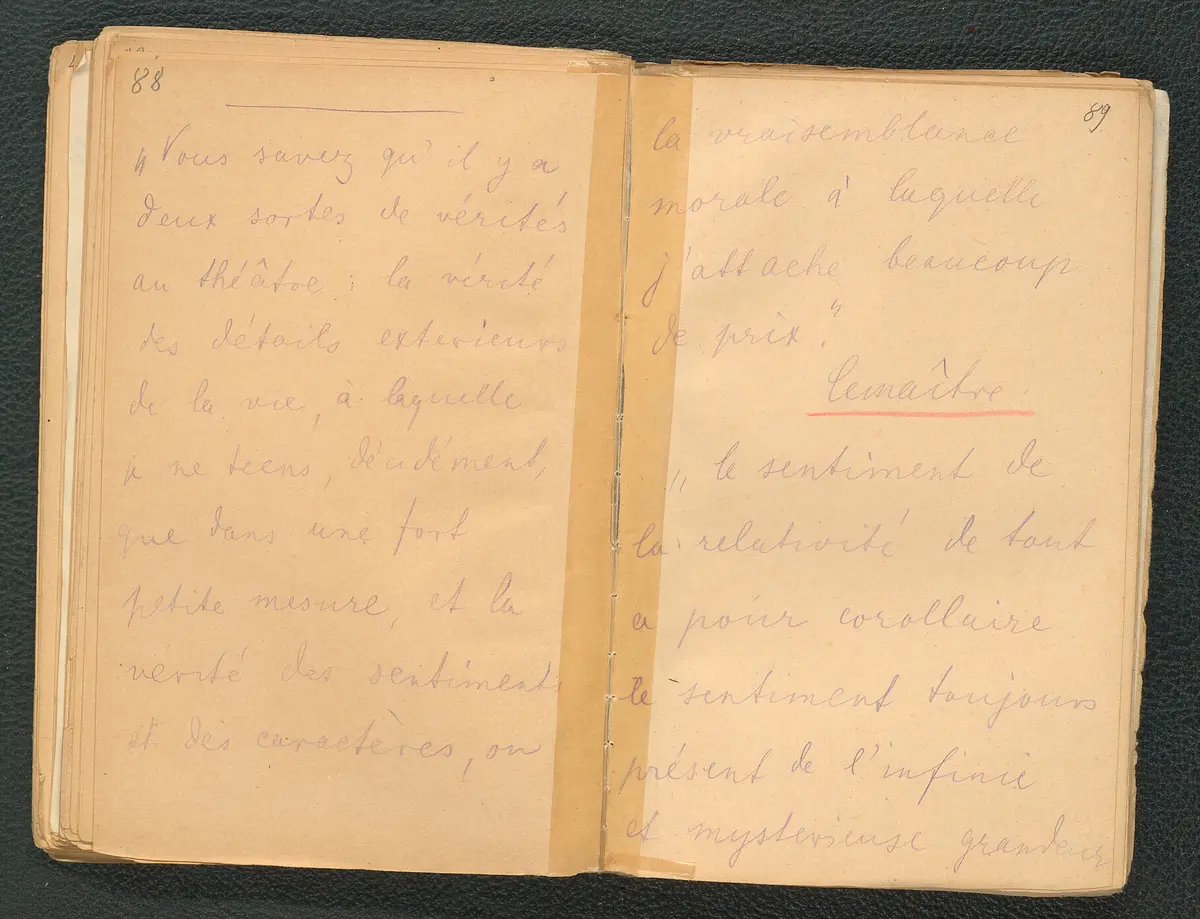 88
„Vous savez qu'il y a
deux sortes de vérités
au théâtre : la vérité
des détails exterieurs
de la vie, à laquelle
je ne tiens, décidément,
que dans une fort
petite mesure, et la
vérité des sentiments
et des caractères, ou
89
la vraisemblance
morale à laquelle
j'attache beaucoup
de prix."
Lemaître
„le sentiment de
la relativité de tout
a pour corollaire
le sentiment toujours
présent de l'infinie
et mysterieuse grandeur